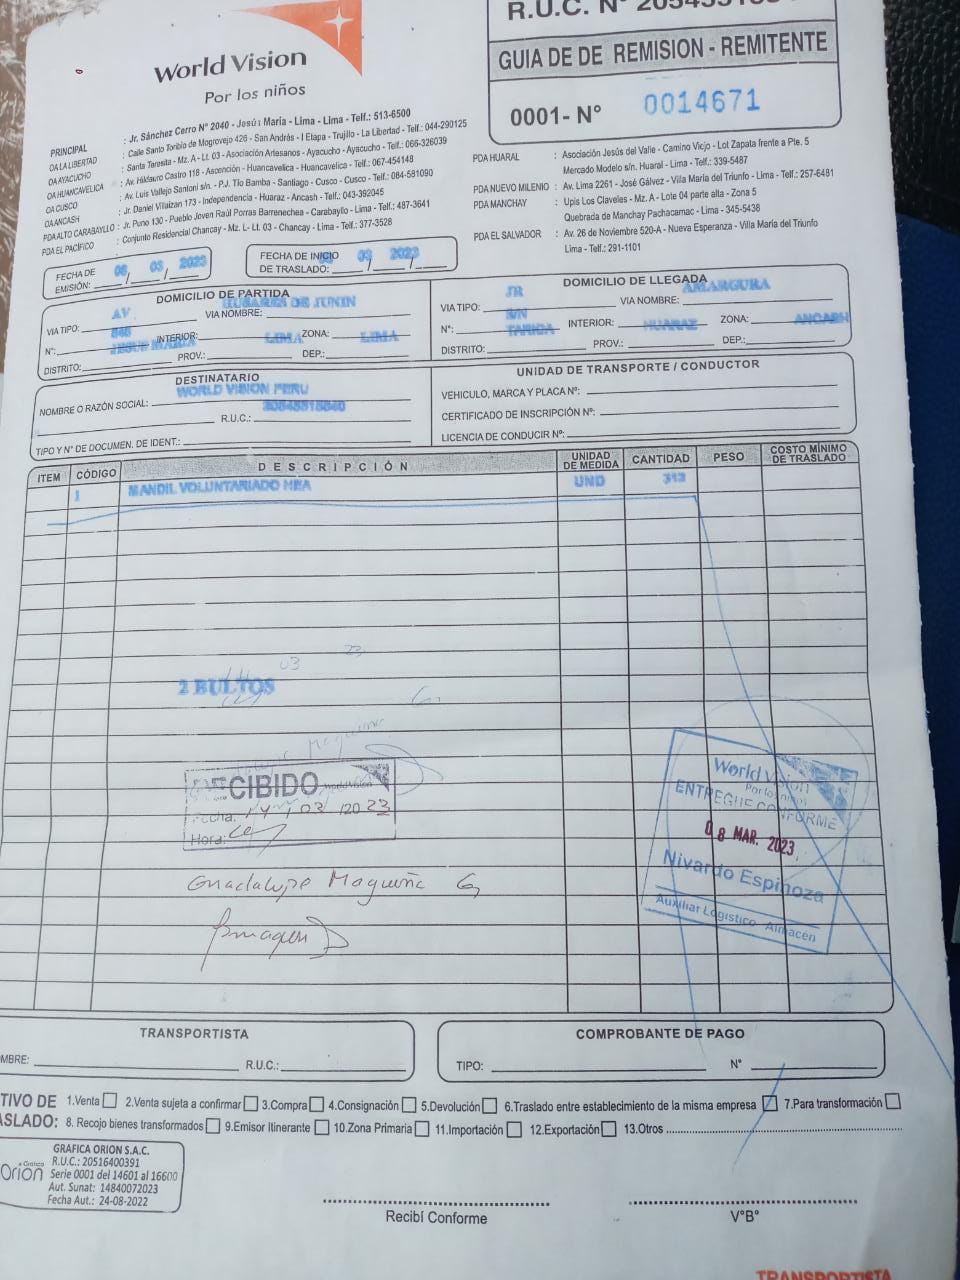 World Vision
Por los niños
R.U.C. N°
GUIA DE DE REMISION - REMITENTE
0001- N° 0014671
PRINCIPAL : Jr. Sánchez Cerro N° 2040 - Jesús María - Lima - Lima - Telf.: 513-6500
OA LA LIBERTAD : Calle Santo Toribio de Mogrovejo 426 - San Andrés - I Etapa - Trujillo - La Libertad - Telf.: 044-290125
OA AYACUCHO : Santa Teresita - Mz. A - Lt. 03 - Asociación Artesanos - Ayacucho - Ayacucho - Telf.: 066-326039
OA HUANCAVELICA : Av. Hildauro Castro 118 - Ascención - Huancavelica - Huancavelica - Telf.: 067-454148
OA CUSCO : Av. Luis Vallejo Santoni s/n. - P.J. Tío Bamba - Santiago - Cusco - Cusco - Telf.: 084-581090
OA ANCASH : Jr. Daniel Villaizan 173 - Independencia - Huaraz - Ancash - Telf.: 043-392045
PDA ALTO CARABAYLLO : Jr. Puno 130 - Pueblo Joven Raúl Porras Barrenechea - Carabayllo - Lima - Telf.: 487-3641
PDA EL PACÍFICO : Conjunto Residencial Chancay - Mz. L - Lt. 03 - Chancay - Lima - Telf.: 377-3528
PDA HUARAL : Asociación Jesús del Valle - Camino Viejo - Lot Zapata frente a Pte. 5
Mercado Modelo s/n. Huaral - Lima - Telf.: 339-5487
PDA NUEVO MILENIO : Av. Lima 2261 - José Gálvez - Villa María del Triunfo - Lima - Telf.: 257-6481
PDA MANCHAY : Upis Los Claveles - Mz. A - Lote 04 parte alta - Zona 5
Quebrada de Manchay Pachacamac - Lima - 345-5438
PDA EL SALVADOR : Av. 26 de Noviembre 520-A - Nueva Esperanza - Villa María del Triunfo
Lima - Telf.: 291-1101
FECHA DE EMISIÓN: 03 / 2023
FECHA DE INICIO DE TRASLADO: 03 / 2023
DOMICILIO DE PARTIDA
VIA TIPO: AV VIA NOMBRE: HUSARES DE JUNIN
N°: INTERIOR: ZONA:
DISTRITO: JESUS MARIA PROV.: LIMA DEP.: LIMA
DOMICILIO DE LLEGADA
VIA TIPO: JR VIA NOMBRE: AMARGURA
N°: S/N INTERIOR: ZONA:
DISTRITO: TARICA PROV.: HUARAZ DEP.: ANCASH
DESTINATARIO
NOMBRE O RAZÓN SOCIAL: WORLD VISION PERU
R.U.C.:
TIPO Y N° DE DOCUMEN. DE IDENT.:
UNIDAD DE TRANSPORTE / CONDUCTOR
VEHICULO, MARCA Y PLACA N°:
CERTIFICADO DE INSCRIPCIÓN N°:
LICENCIA DE CONDUCIR N°:
ITEM CÓDIGO DESCRIPCIÓN UNIDAD DE MEDIDA CANTIDAD PESO COSTO MÍNIMO DE TRASLADO
1 MANDIL VOLUNTARIADO UND 313
03 23
2 BULTOS
RECIBIDO World Vision
Fecha: 14 / 03 / 2023
Hora:
Guadalupe Maguiña G
World Vision
Por los niños
ENTREGUE CONFORME
08 MAR. 2023
Nivardo Espinoza
Auxiliar Logístico - Almacén
TRANSPORTISTA
MBRE: R.U.C.:
COMPROBANTE DE PAGO
TIPO: N°
TIVO DE 1.Venta 2.Venta sujeta a confirmar 3.Compra 4.Consignación 5.Devolución 6.Traslado entre establecimiento de la misma empresa 7.Para transformación
ASLADO: 8. Recojo bienes transformados 9.Emisor Itinerante 10.Zona Primaria 11.Importación 12.Exportación 13.Otros
Gráfica Orión
GRAFICA ORION S.A.C.
R.U.C.: 20516400391
Serie 0001 del 14601 al 16600
Aut. Sunat: 14840072023
Fecha Aut.: 24-08-2022
Recibí Conforme
V°B°
TRANSPORTISTA